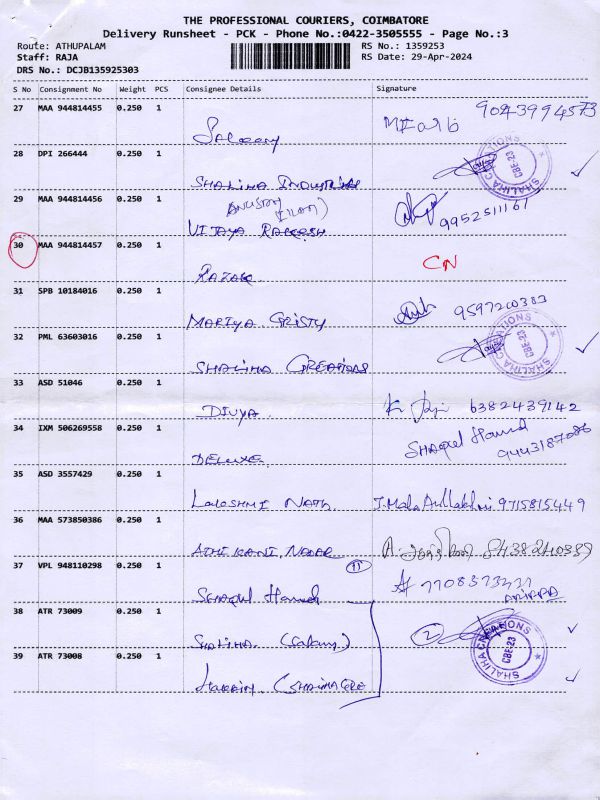 THE PROFESSIONAL COURIERS, COIMBATORE
Delivery Runsheet - PCK - Phone No.:0422-3505555 - Page No.:3
Route: ATHUPALAM RS No.: 1359253
Staff: RAJA RS Date: 29-Apr-2024
DRS No.: DCJB135925303
S No Consignment No Weight PCS Consignee Details Signature
27 MAA 944814455 0.250 1 9043994573
28 DPI 266444 0.250 1 SHALIHA SHALIHA CREATIONS CBE-23
29 MAA 944814456 0.250 1 VIJAYA RAKESH 9952511161
30 MAA 944814457 0.250 1 RAZAK CN
31 SPB 10184016 0.250 1 MARIYA CRISTY 9597200383
32 PML 63603016 0.250 1 SHALIHA CREATIONS SHALIHA CREATIONS CBE-23
33 ASD 51046 0.250 1 DIVYA 6382439142
34 IXM 506269558 0.250 1 DELUXE Shaqul Hamid
35 ASD 3557429 0.250 1 LAKSHMI NATH 9715815449
36 MAA 573850386 0.250 1 NADAR
37 VPL 948110298 0.250 1 Shaqul Hamid 11
38 ATR 73009 0.250 1 SHALIHA 2 SHALIHA CREATIONS CBE-23
39 ATR 73008 0.250 1